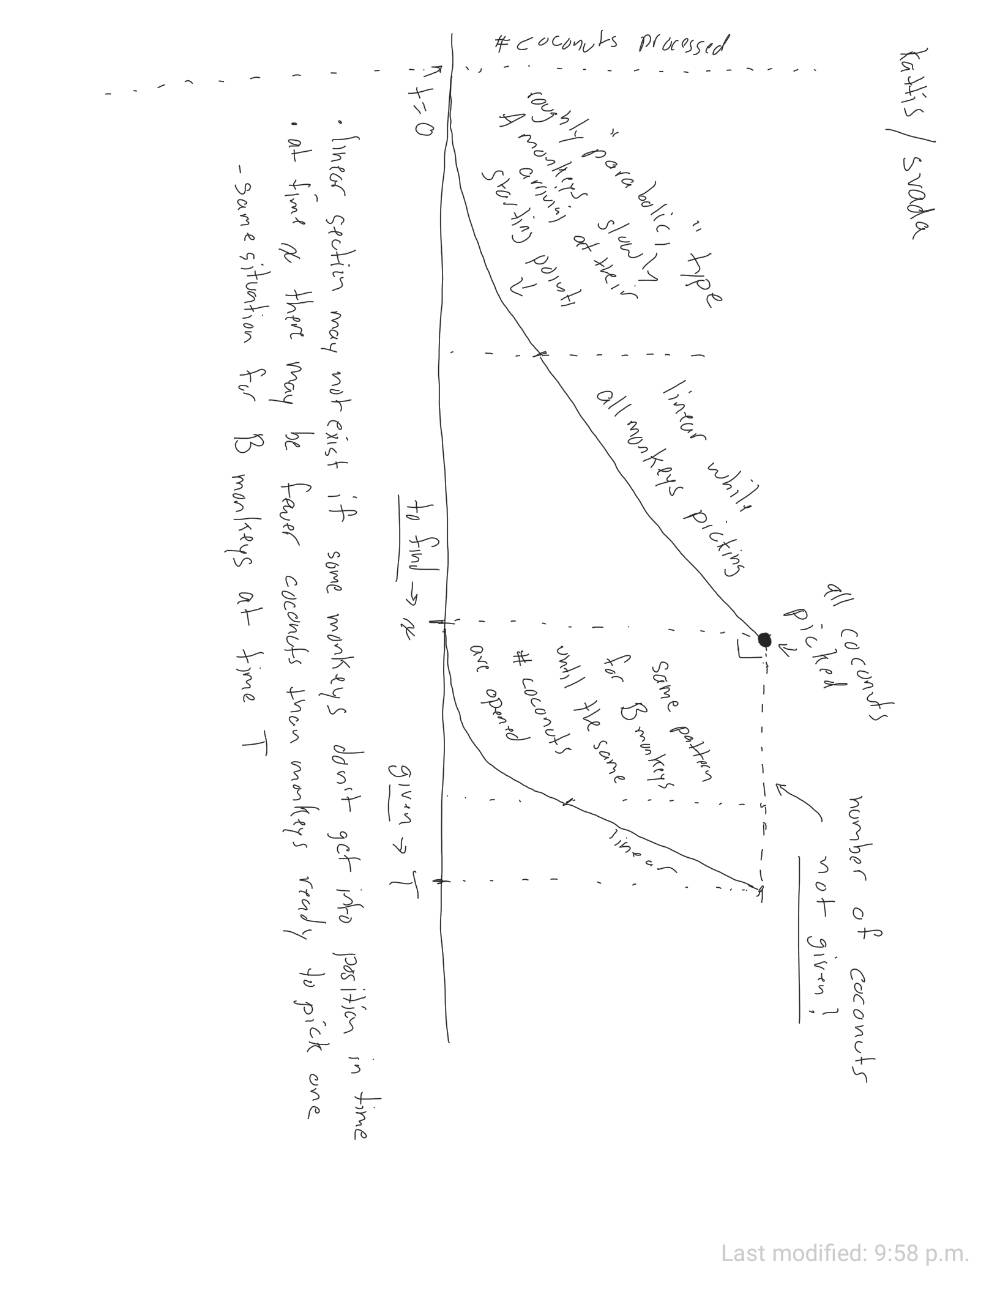 kattis/svada
Last modified: 9:58 p.m.
# coconuts processed
roughly "parabolic" type
A monkeys slowly
arriving at their
starting points
linear while
all monkeys picking
all coconuts
picked
number of coconuts
not given!
same pattern
for B monkeys
until the same
# coconuts
are opened
linear
t=0
to find → x
given → T
• linear section may not exist if some monkeys don't get into position in time
• at time x there may be fewer coconuts than monkeys ready to pick one
- same situation for B monkeys at time T